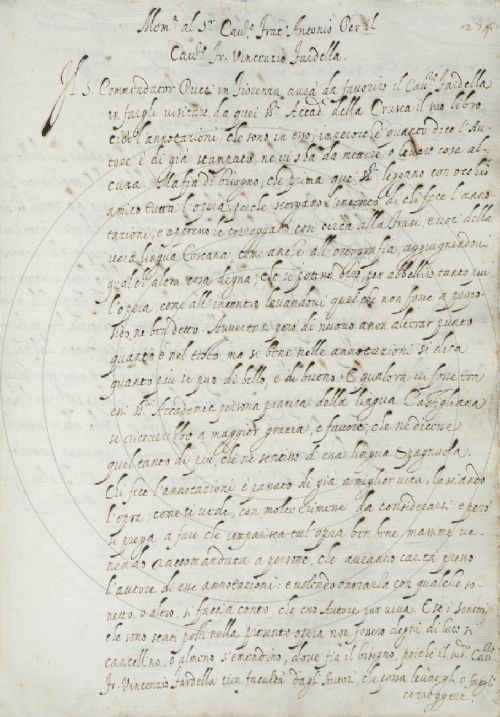 Mem.ª al S.r Cau.re frat' Antonio Per il
Cau.re fr. Vincenzio Jardella.
Il S. Commendator Pucci in fiorenza, haurà da fauorir il Cau.re Jardella
in fargli uisitare da quei SS.ri Accad.ci della Crusca il suo libro
cioè l'annotazioni, che sono in esso, imperoche quanto dice l'Au-
tore è di già stampato, ne ui s'hà da mettere, o leuare cosa al-
cuna. Ma fia di bisogno, che prima que' SS.ri leggano con occhio
amico tutta l'opera, perche scorgano l'intento di chi fece l'anno-
tazione, e appresso le correggano così circa alla frasi, e uoci della
uera lingua toscana, come anche all'ortografia, aggiugnendoui
qual ch'altra cosa degna, che se potesse dire, per abbellire tanto più
l'opera, come all'incontro leuandone quel che non fosse a propo-
sito, ne ben detto. Auuertasi però di nuouo a non alterar punto
quanto è nel testo, ma si bene nelle annotazioni si dica
quanto più se può di bello, e di buono. E qualora ui fosse tra
essi SS.ri Accademici persona pratica della lingua Castigliana
si riceuerebbe a maggior grazia, e fauore, che ne dicesse
quel tanto di più, che ne sentisse d'essa lingua Spagnuola.
Chi fece l'annotazione è passato di già a miglior uita, lasciando
l'opra come si uede, con molto lume da considerarsi: e però
si prega a fare che comparisca tal' opra ben bene, massime ue-
nendo raccomandata a persone, che aueano carità presso
l'autore di esse annotazioni: e uolendo onorarla con qualche so-
netto, o altro, si faccia conto, che esso Autore sia uiua. E se i sonetti
che sono stati posti nella presente opera non fossero degni di luce si
cancellino, o almeno s'emendino, doue fia il bisogno, poiche il sud.º Cau.re
fr. Vincenzio Jardella tien facultà dagli Autori che possa leuargli, o fargli
correggere.